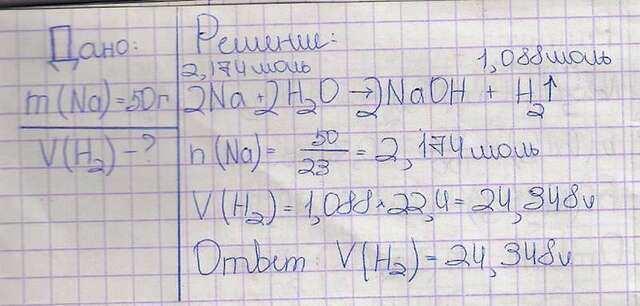 Дано:
m(Na)=50г
V(H₂)-?
Решение:
2,174моль 1,088моль
2Na+2H₂O→2NaOH + H₂↑
n(Na)= 50/23 = 2,174моль
V(H₂)=1,088*22,4=24,348л
Ответ: V(H₂)=24,348л